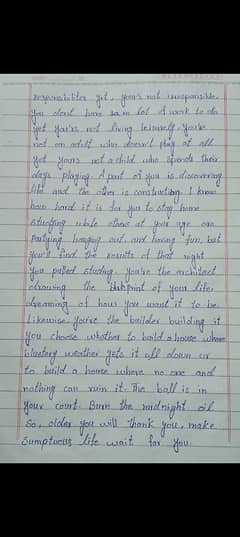 responsibilites yet, you're not irresponsible.
You don't have a lot of work to do
yet you're not living leisurely. You're
not an adult who doesn't play at all
yet you're not a child who spends their
days playing. A part of you is discovering
life and the other is constructing. I know
how hard it is for you to stay home
studying while others at your age are
partying, hanging out and having fun, but
you'll find the results of that night
you pulled studing. you're the architect
drawing the blueprint of your life
dreaming of how you want it to be
likewise you're the builder building it
you choose whether to build a house where
blustery weather gets it all down or
to build a house where no one and
nothing can ruin it. The ball is in
your court. Burn the midnight oil
So, older you will thank you, make
Sumptuous life wait for you.